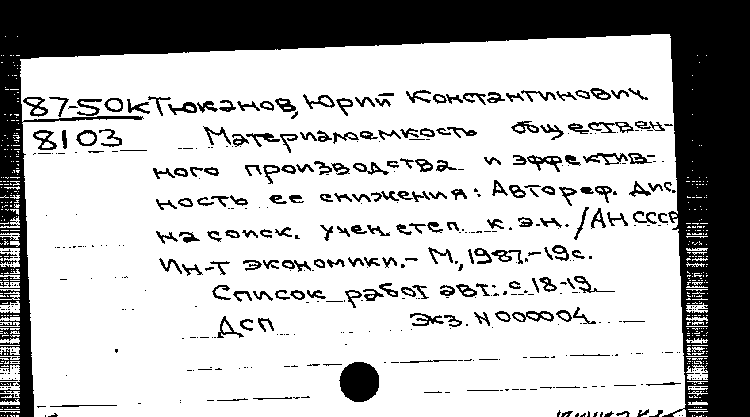 87-50к Тюканов, Юрий Константинович.
8103 Материалоемкость обществен-
ного производства и эффектив-
ность ее снижения: Автореф. дис.
на соиск. учен. степ. к.э.н. / АН СССР,
Ин-т экономики.- М., 1987.-19с.
Список работ авт.: с. 18-19.
ДСП Экз. N 000004